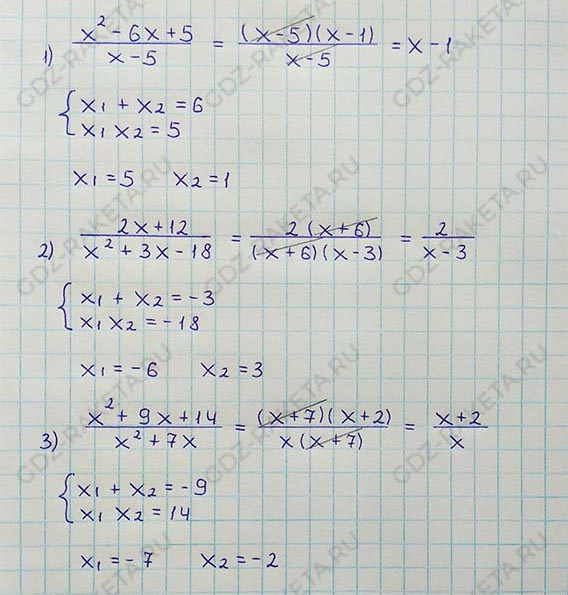 1) (x² - 6x + 5)/(x - 5) = ((x-5)(x-1))/(x-5) = x - 1
{ x₁ + x₂ = 6
x₁ x₂ = 5
x₁ = 5 x₂ = 1
2) (2x + 12)/(x² + 3x - 18) = (2(x+6))/((x+6)(x-3)) = 2/(x-3)
{ x₁ + x₂ = -3
x₁ x₂ = -18
x₁ = -6 x₂ = 3
3) (x² + 9x + 14)/(x² + 7x) = ((x+7)(x+2))/(x(x+7)) = (x+2)/x
{ x₁ + x₂ = -9
x₁ x₂ = 14
x₁ = -7 x₂ = -2
GDZ-RAKETA.RU